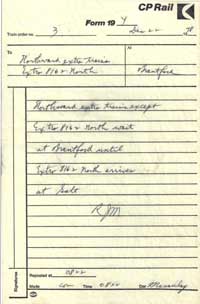 CP Rail
Form 19 Y
Train order no. 3 Dec 22 78
To At
Northward extra trains
Extra 8162 North Brantford
Northward extra trains except
Extra 8162 North wait
at Brantford until
Extra 8162 North arrives
at Galt
RJM
Signatures
Repeated at 0822
Made com Time 0822 Opr